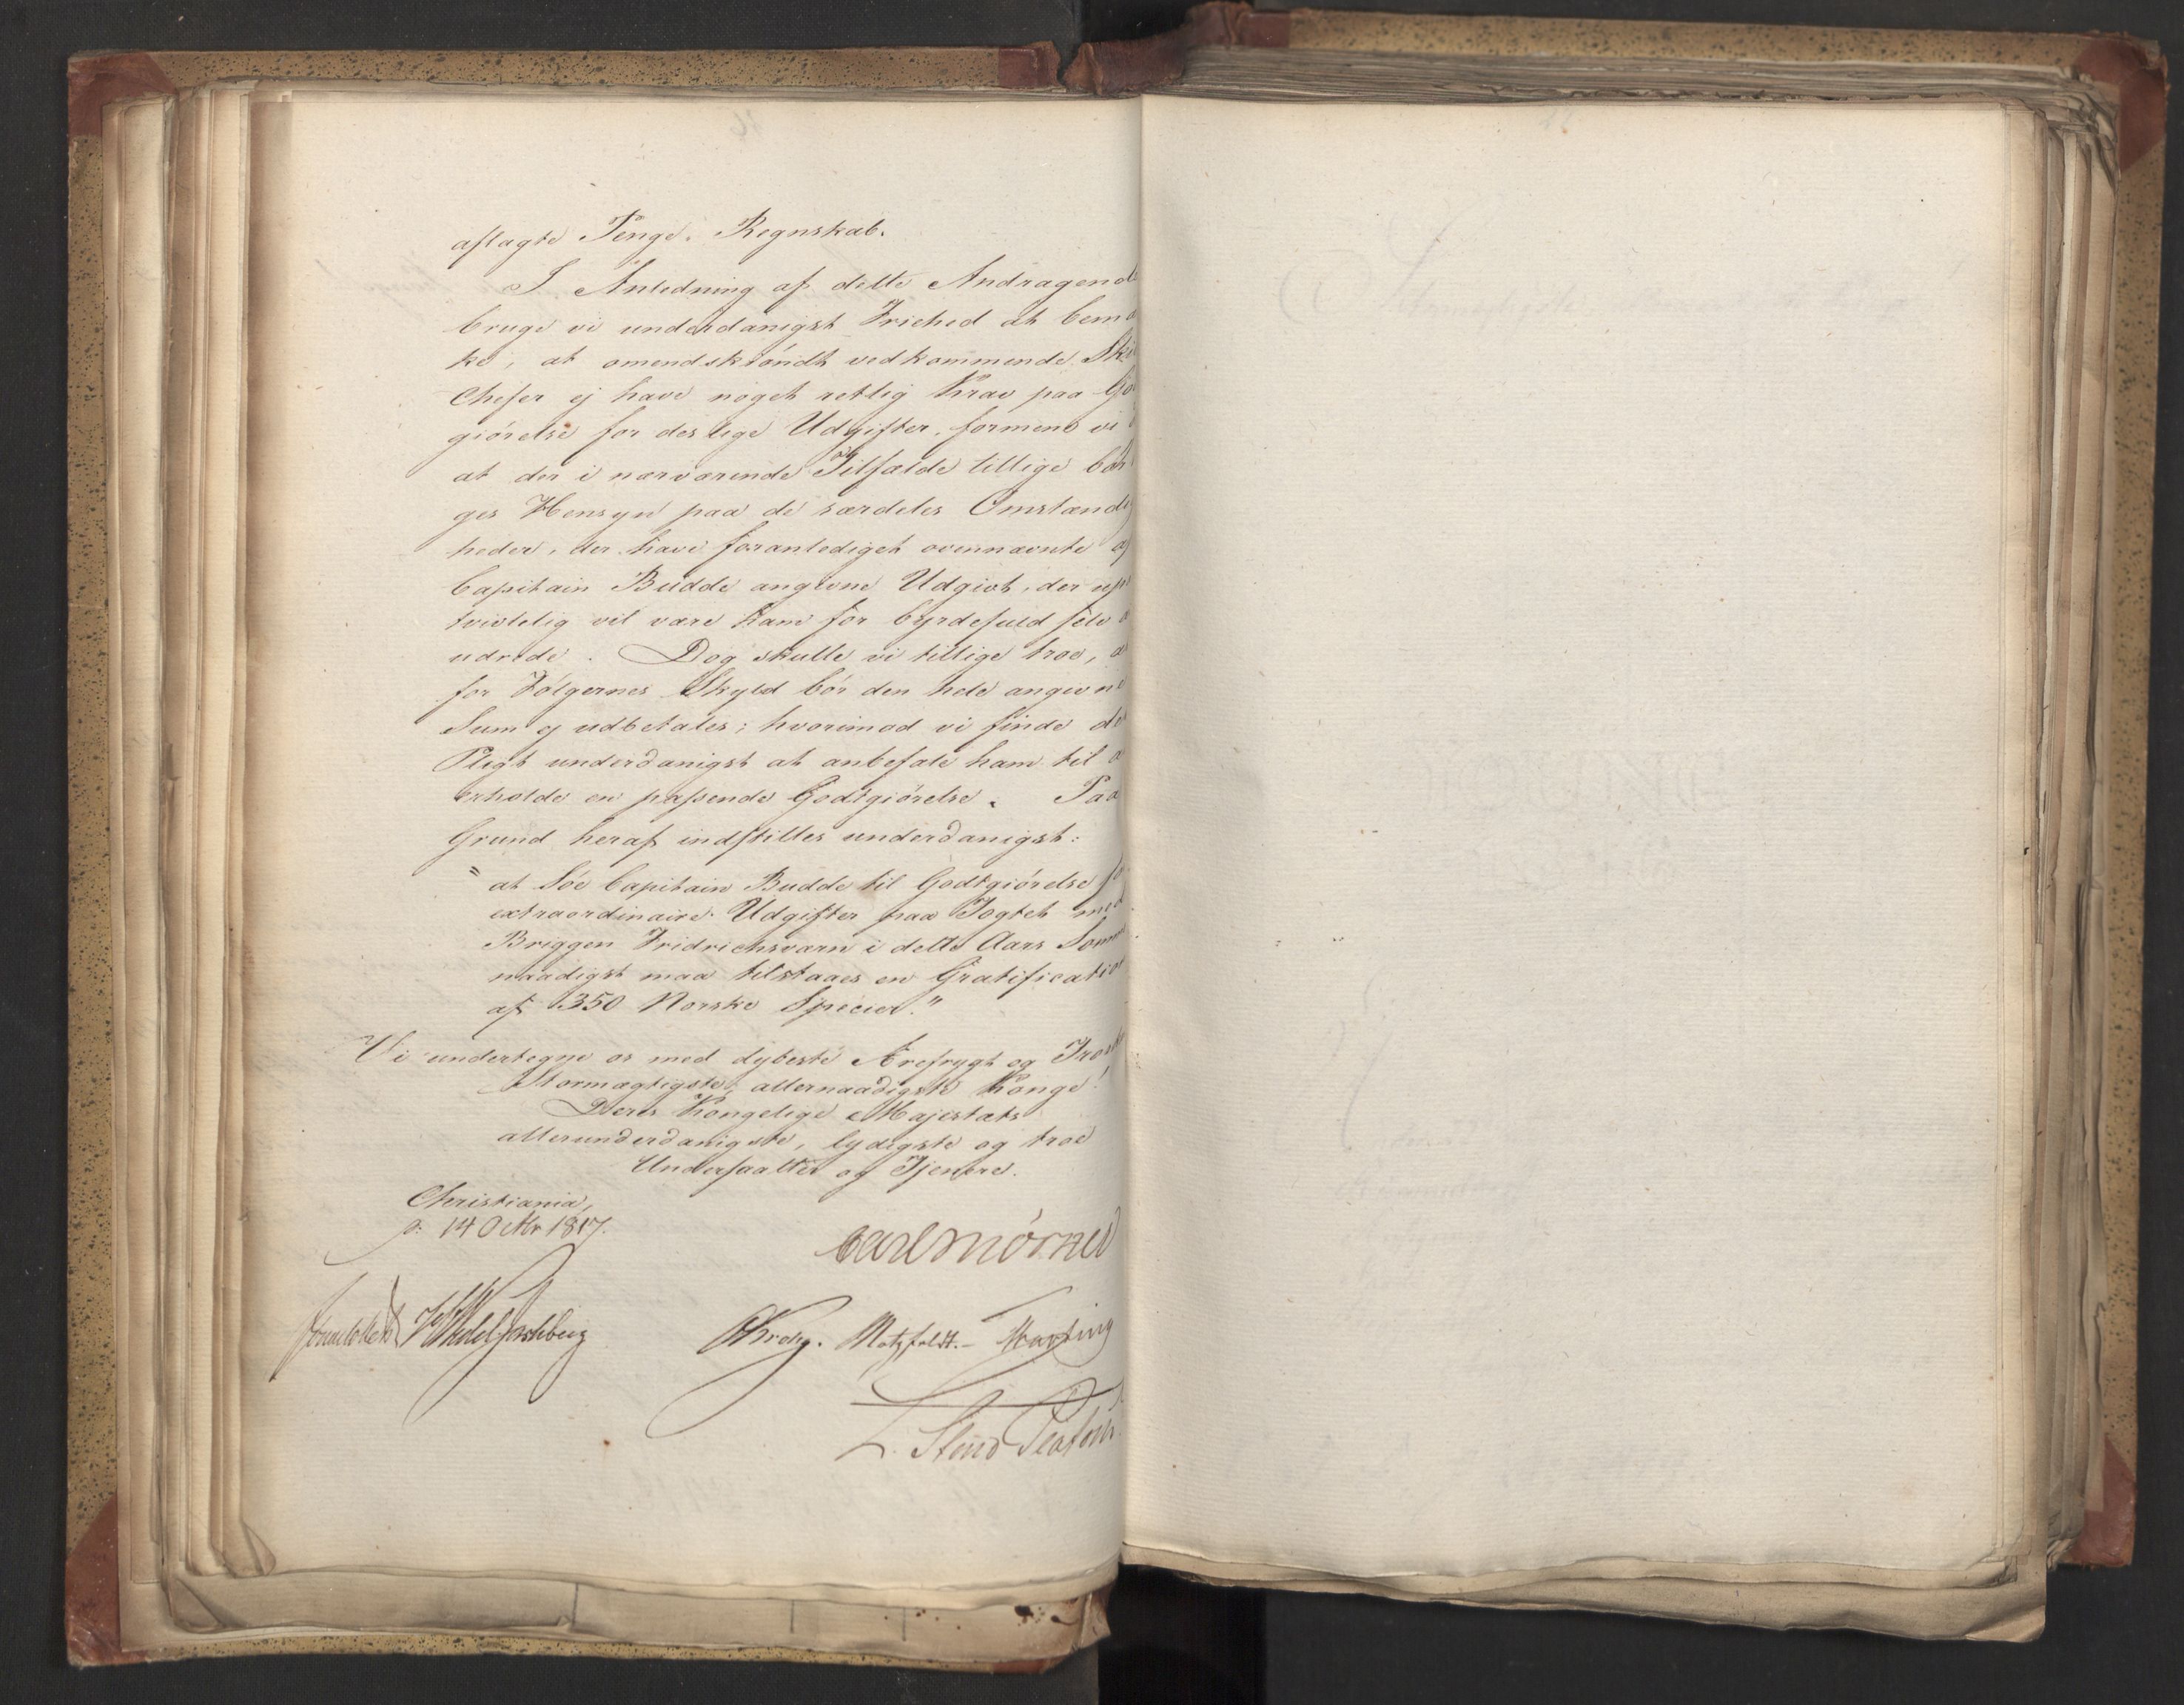 aflagte Penge-Regnskab.
I Anledning af dette Andragende
bruge vi underdanigst Friehed at bemæ
ke, at omendskiöndt vedkommende Ski
Chefer ej have noget retlig Krav paa Go
giörelse for deslige Udgifter, formene vi
at der i nærværende Tilfælde tillige bör
ges Hensyn paa de særdeles Omstændig
heder, der have foranlediget ovennævnte af
Capitain Budde angivne Udgivt, der up
tvivlelig vil være ham for byrdefuld selv a
udrede. Dog skulle vi tillige troe, a
for Fölgernes Skyld bör den hele angivne
Sum ej udbetales; hvorimod vi finde de
Pligt underdanigst at anbefale ham til a
erholde en passende Godtgiörelse. Paa
Grund heraf indstilles underdanigst:
"at Söe Capitain Budde til Godtgiörelse for
extraordinaire Udgifter paa Togtet med
Briggen Fridrichsværn i dette Aars Somm
naadigst maa tilstaaes en Gratification
af 350 Norske Specier."
Vi undertegne os med dybeste Ærefrygt og Troesk
Stormægtigste, allernaadigste Konge!
Deres Kongelige Majestæts
allerunderdanigste, lydigste og troe
Undersaatter og Tjenere.
Christiania,
d: 14 Octbr 1817.
Carl Mörner
Sommerhielm Wedel Jarlsberg Krohg. Motzfeldt.- Hæsting
L. Stoud Platou